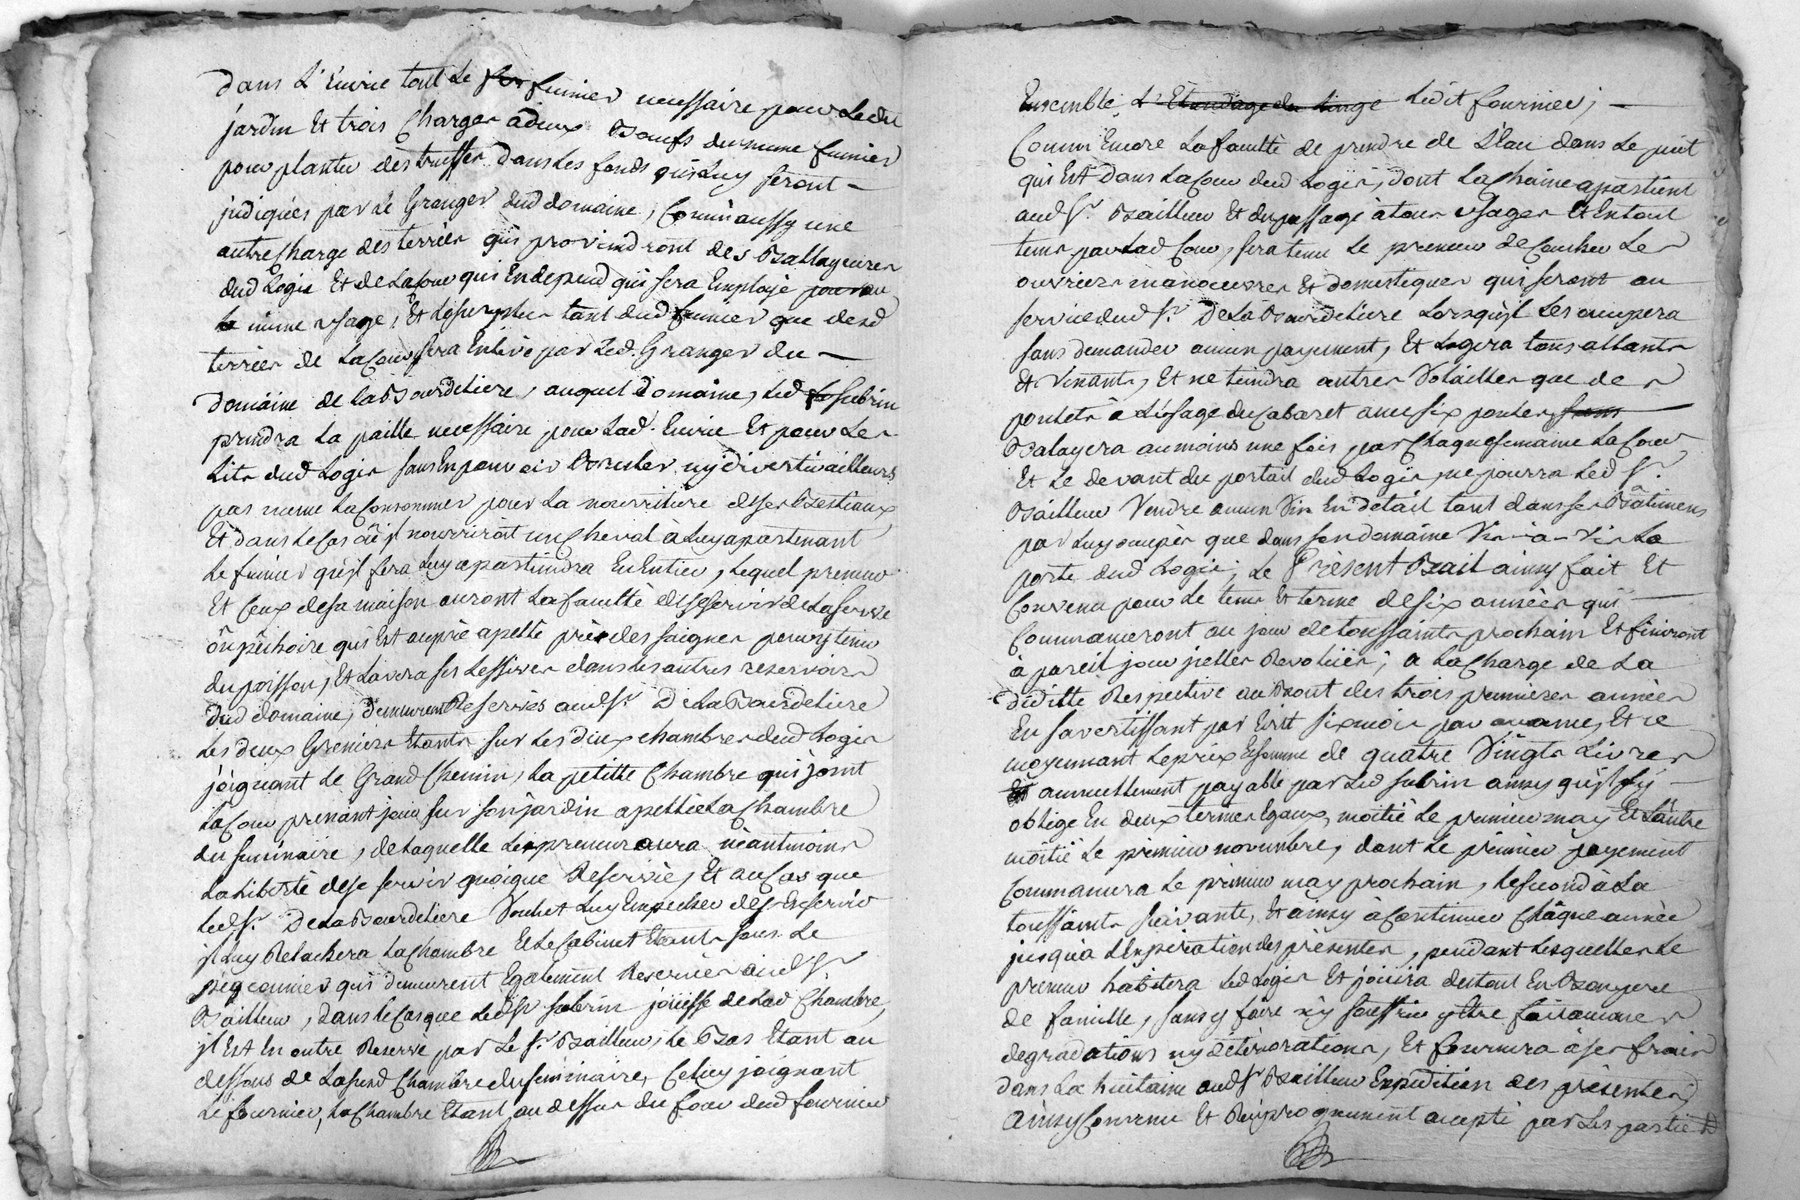 dans L'Ecurie tout Le fumier necessaire pour Ledit
jardin Et trois Charges a deux Boeufs du meme fumier
pour planter des truffes dans Les fonds qui Luy seront
indiquées par Le Granger dud domaine, Comm'aussy une
autre Charge des terriers qui proviendront des Ballayeures
dud Logis Et de La Cour qui En depend qui sera Employé
meme usage, Et Le surplus tant dud fumier que desd
terriers de La Cour sera Enlevé par Led. Granger du
domaine de la Bourdeliere, auquel domaine, Led Subrin
prendra La paille necessaire pour Lad. Ecurie Et pour Les
Lits dud Logis sans En pouvoir Bruler ny divertir ailleurs
pas meme La Consommer pour La nourriture de ses Bestiaux
Et dans Le Cas où il nourriroit un Cheval à Luy apartenant
Le fumier qu'il fera Luy apartiendra En Entier, Lequel preneur
Et Ceux de sa maison auront La faculté de se servir de La serve
ou pechoire qui Est auprès apellé pré des saignes pour y tenir
du poisson, Et Lavera ses Lessives dans Les autres reservoirs
dud domaine, demeurent Reservés aud Sr. De La Bourdeliere
Les deux Greniers Etants sur Les deux chambres dud Logis
joignant Le Grand Chemin, La petitte Chambre qui joint
La Cour prenant jour sur son jardin apellée La Chambre
du seminaire, de Laquelle Le preneur aura néantmoins
La Liberté de se servir quoique Reservée, Et au Cas que
Led Sr. De La Bourdeliere Voulut Luy Empecher de s'En servir
il Luy Relachera La Chambre Et Le Cabinet Etants sous Le
pigeonnier qui demeurent Egalement Reservés aud Sr.
Bailleur, dans le Cas que Led Sr Subrin joüisse de Lad Chambre,
il Est En outre Reservé par Le Sr. Bailleur, Le Bas Etant au
dessous de La susd Chambre du seminaire, Celuy joignant
Le fournier, La Chambre Etant au dessus du four dud fournier
Ensemble, L'Etendage du Linge Ledit fournier;
Comm'Encore La faculté de prendre de L'Eau dans Le puit
qui Est dans La Cour dud Logis, dont La Chaine apartient
aud Sr. Bailleur Et du passage à tous usages Et En tout
tems par Lad Cour, sera tenu Le preneur de Coucher Les
ouvriers manoeuvres Et domestiques qui seront au
service dud Sr. De La Bourdeliere Lorsqu'il Les occupera
sans demander aucun payement, Et Logera tous allants
Et Venants, Et ne tiendra autres Volailles que des
poulets à L'usage du Cabaret avec six poules,
Balayera au moins une fois par Chaque semaine La Cour
Et Le devant du portail dud Logis, ne pourra Led Sr.
Bailleur Vendre aucun Vin En detail tant dans ses Batiments
par Luy occupés que dans son domaine Vis-a-Vis La
porte dud Logis; Le Présent Bail ainsy fait Et
Convenu pour Le tems Et terme de six années qui
Commanceront au jour de toussaints prochain Et finiront
à pareil jour jcelles Revolües; a La Charge de La
diditte Respective au Bout des trois premieres années
En s'avertissant par Ecrit six mois par avance, Et ce
moyennant Le prix Et somme de quatre Vingts Livres
annuellement payable par Led Subrin ainsy qu'il s'y
oblige En deux termes Egaux, moitié Le premier may Et L'autre
moitié Le premier novembre, dont Le premier payement
Commancera Le premier may prochain, Le second à La
toussaints suivante, Et ainsy à Continuer Châque année
jusqu'à L'Expiration des présentes, pendant Lesquelles Le
preneur habitera Led Logis Et jouira du tout En Bon pere
de famille, sans y faire n'y souffrir y Etre fait aucunes
degradations ny déteriorations, Et fournira à ses frais
dans La huitaine aud Sr Bailleur Expédition des présentes,
Ainsy Convenu Et Réciproquement accepté par Les parties